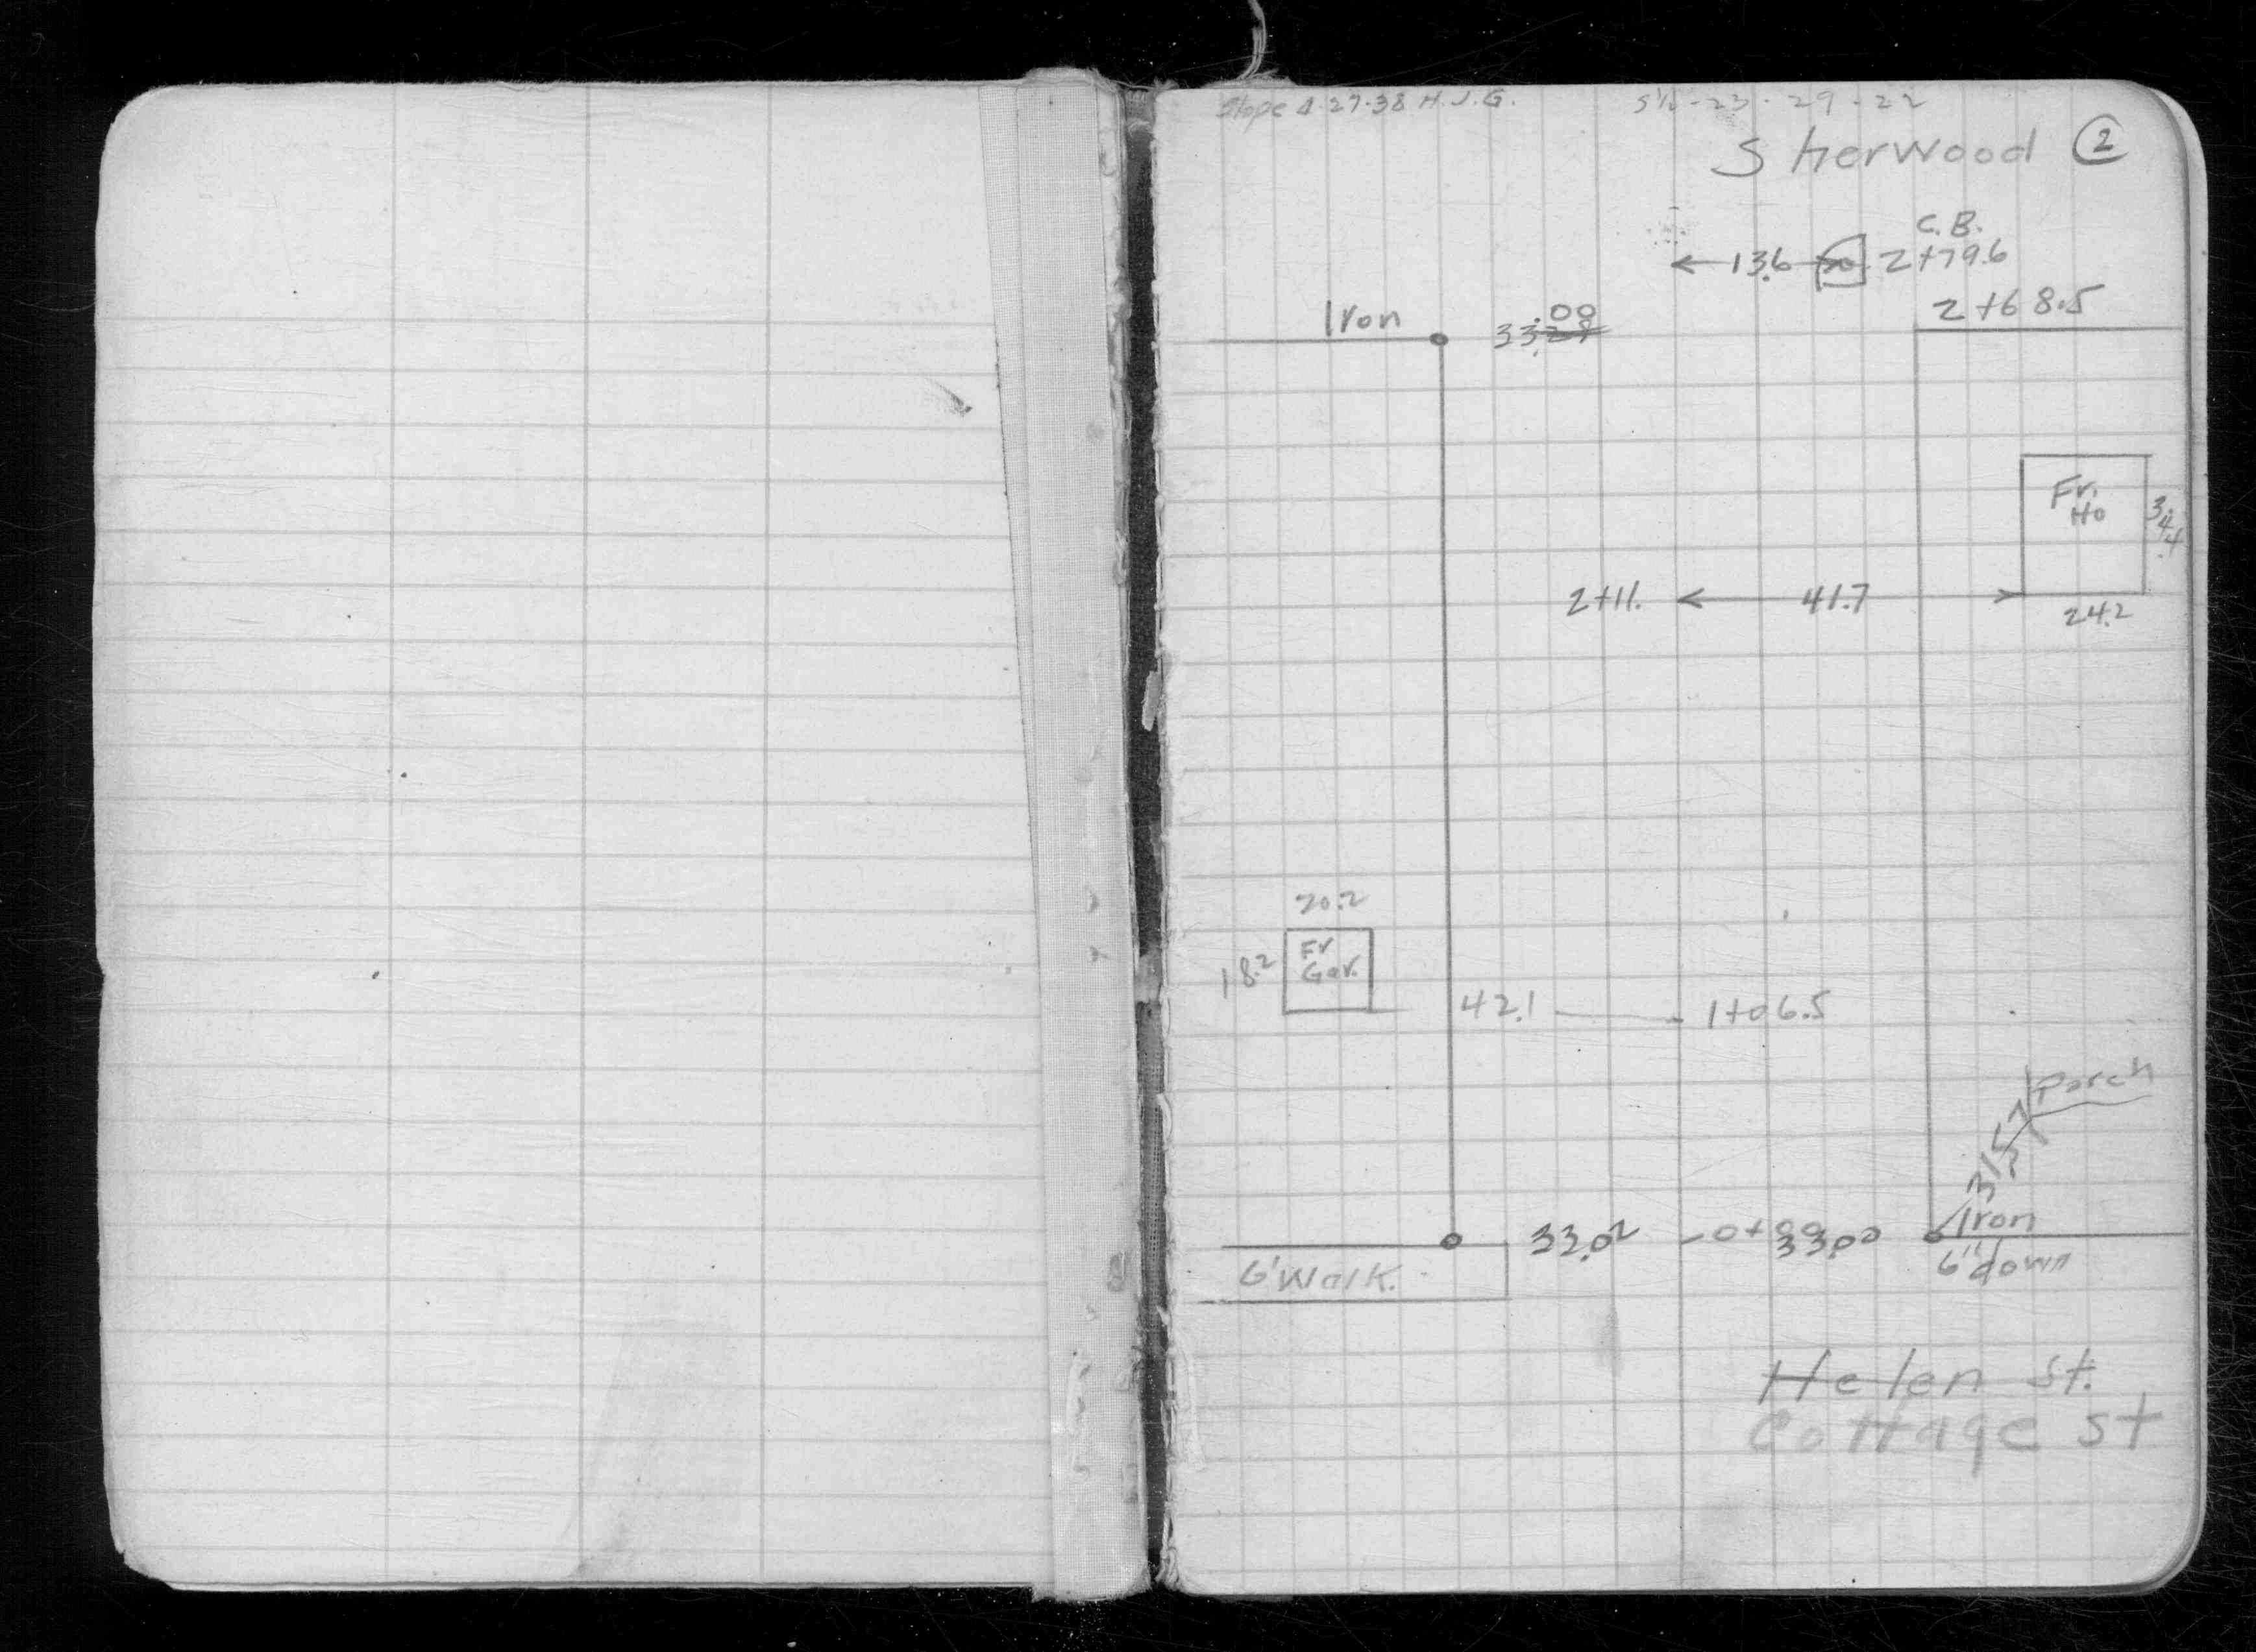 Slope 4-27-38 H.J.G. S½-23-29-22
Sherwood 2
C.B.
13.6 2+79.6
2+68.5
Iron 33.28 .00
Fr. Ho
34.4
2+11. 41.7
24.2
20.2
18.2 Fr Gar.
42.1 1+06.5
Porch
31.57
Iron
33.02 0+00 33.00
6' Walk. 6" down
Helen St.
Cottage St